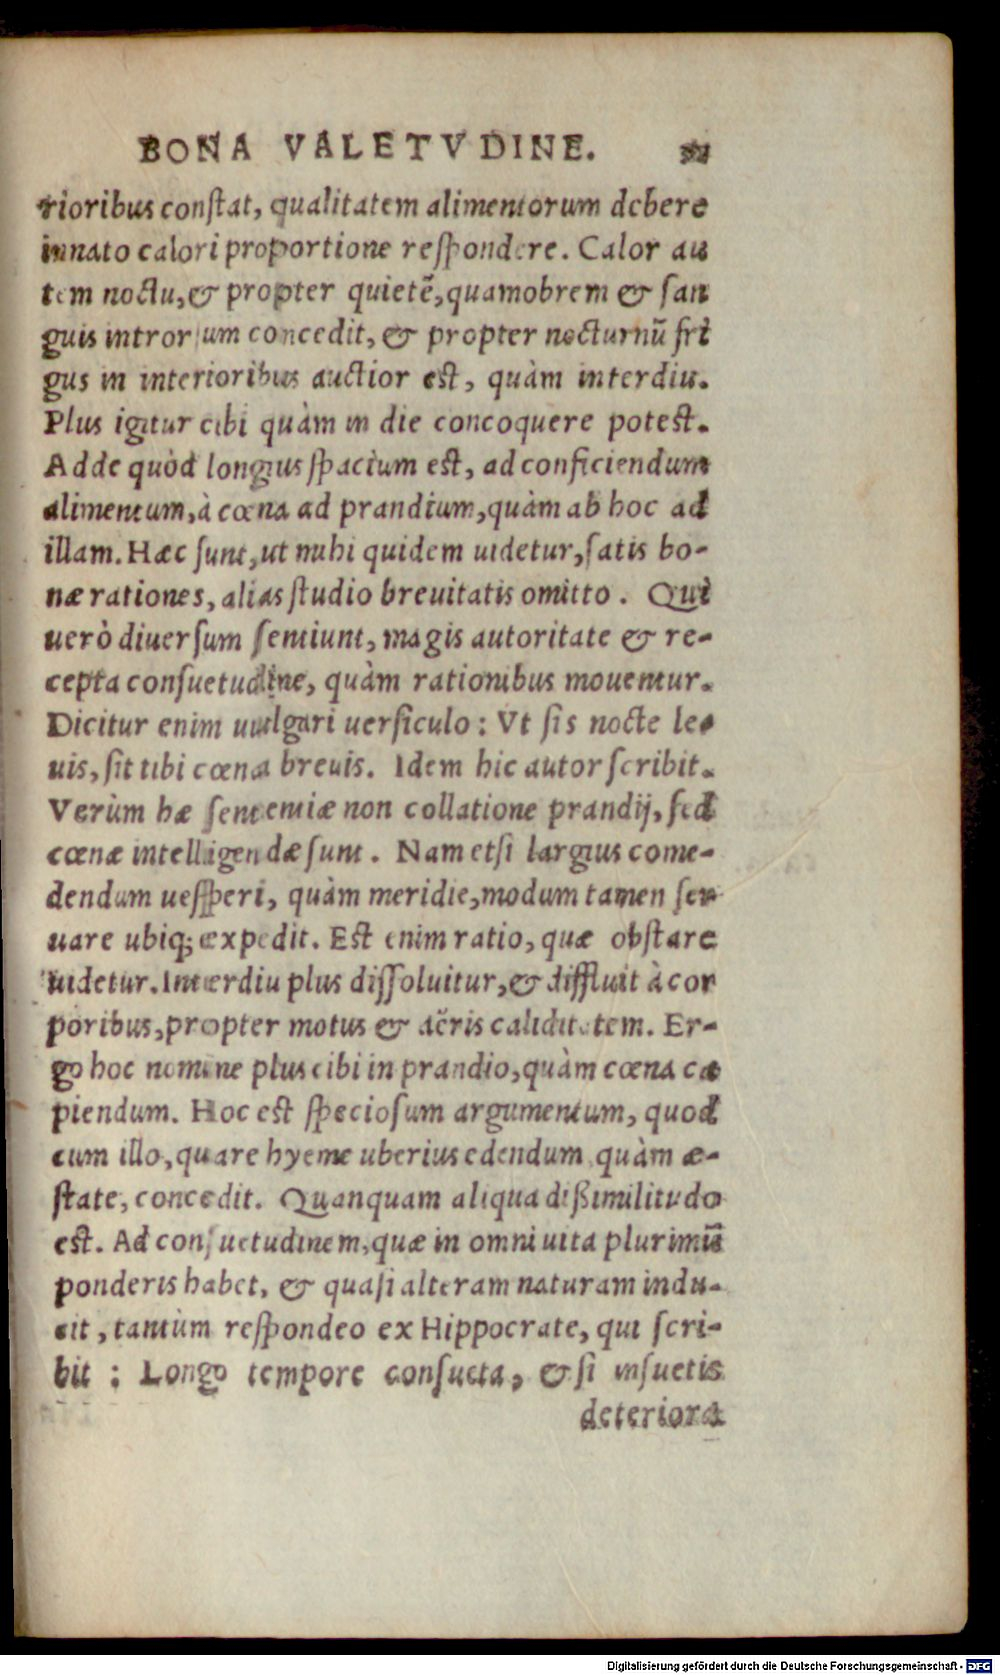 BONA VALETVDINE.
rioribus constat, qualitatem alimentorum debere
innato calori proportione respondere. Calor au
tem noctu, & propter quietẽ, quamobrem & san
guis introrsum concedit, & propter nocturnũ fri
gus in interioribus auctior est, quàm interdiu.
Plus igitur cibi quàm in die concoquere potest.
Adde quòd longius spacium est, ad conficiendum
alimentum, à cœna ad prandium, quàm ab hoc ad
illam. Hæc sunt, ut mihi quidem uidetur, satis bo-
næ rationes, alias studio breuitatis omitto. Qui
uerò diuersum sentiunt, magis autoritate & re-
cepta consuetudine, quàm rationibus mouentur.
Dicitur enim uulgari uersiculo: Vt sis nocte le-
uis, sit tibi cœna breuis. Idem hic autor scribit.
Verùm hæ sententiæ non collatione prandij, sed
cœnæ intelligendæ sunt. Nam etsi largius come-
dendum uesperi, quàm meridie, modum tamen ser
uare ubiq; expedit. Est enim ratio, quæ obstare
uidetur. Interdiu plus dissoluitur, & diffluit à cor
poribus, propter motus & aëris caliditatem. Er-
go hoc nomine plus cibi in prandio, quàm cœna ca
piendum. Hoc est speciosum argumentum, quod
cum illo, quare hyeme uberius edendum quàm æ-
state, concedit. Quanquam aliqua dißimilitudo
est. Ad consuetudinem, quæ in omni uita plurimũ
ponderis habet, & quasi alteram naturam indu-
cit, tantùm respondeo ex Hippocrate, qui scri-
bit: Longo tempore consueta, & si insuetis
deteriora
Digitalisierung gefördert durch die Deutsche Forschungsgemeinschaft - DFG